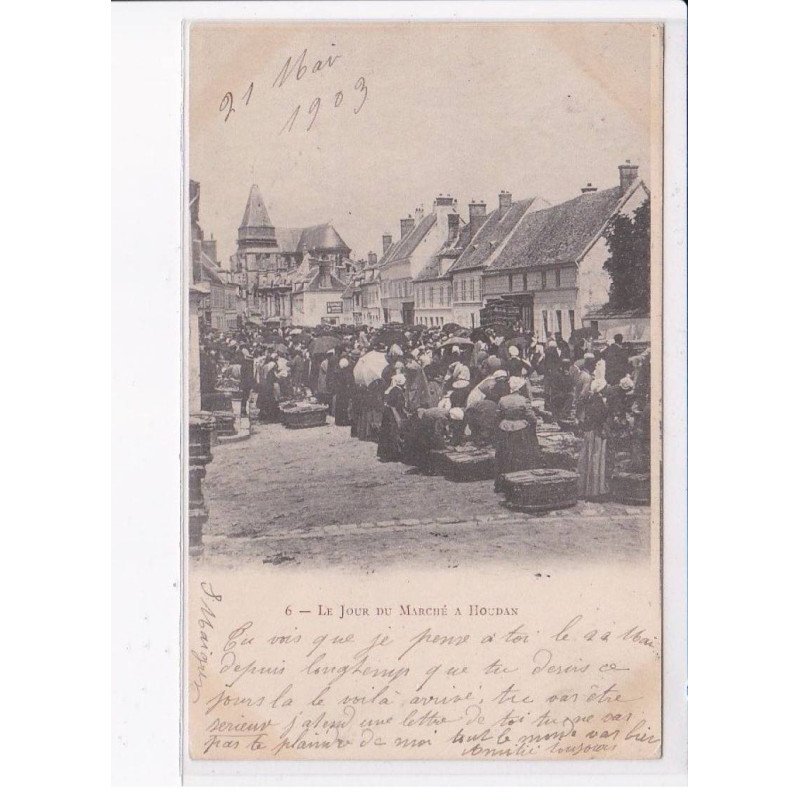 21 Mai
1903
6 — LE JOUR DU MARCHÉ A HOUDAN
Tu vois que je pense a toi le 22 Mai
depuis longtemp que tu desirs ce
jours la le voilà arrivé, tu var être
serieux j'atend une lettre de toi tu ne var
pas te plaindre de moi tout le monde var bien
Amitié toujours